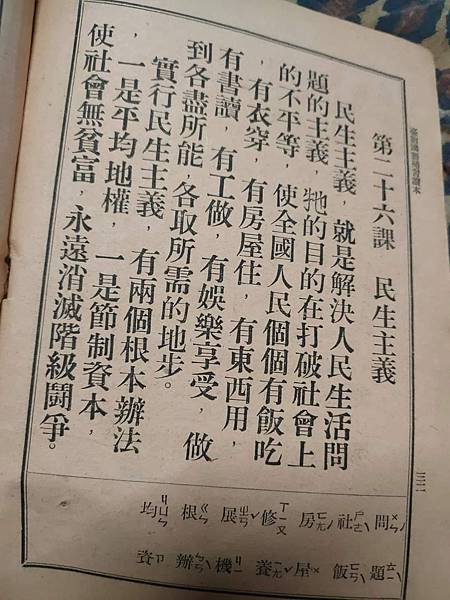 三二
第二十六課　民生主義
民生主義，就是解決人民生活問
題的主義，牠的目的在打破社會上
的不平等，使全國人民個個有飯吃
，有衣穿，有房屋住，有東西用，
有書讀，有工做，有娛樂享受，做
到各盡所能，各取所需的地步。
實行民生主義，有兩個根本辦法
，一是平均地權，一是節制資本，
使社會無貧富，永遠消滅階級鬪爭。
問ㄨㄣˋ 社ㄕㄜˋ 房ㄈㄤˊ 修ㄒㄧㄡ 展ㄓㄢˇ 根ㄍㄣ 均ㄐㄩㄣ
題ㄊㄧˊ 飯ㄈㄢˋ 屋ㄨ 養ㄧㄤˇ 機ㄐㄧ 辦ㄅㄢˋ 資ㄗ